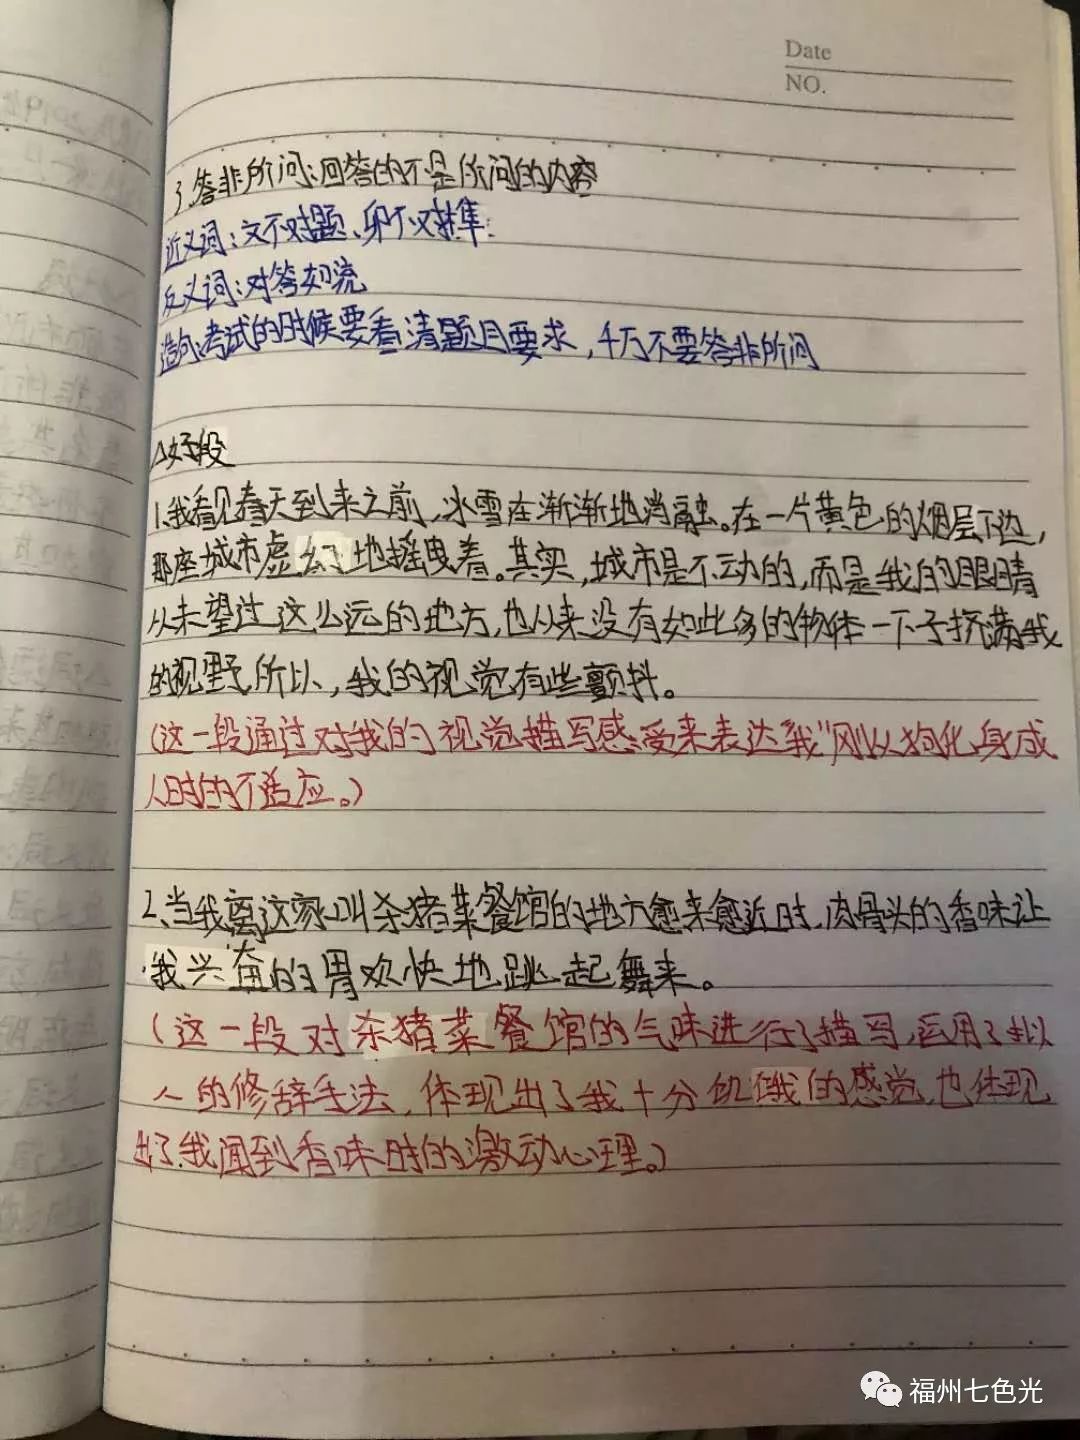 Date
NO.
3.答非所问:回答的不是所问的内容
近义词:文不对题、卯不对榫:
反义词:对答如流
造句:考试的时候要看清题目要求,千万不要答非所问
△好段
1.我看见春天到来之前,冰雪在渐渐地消融。在一片黄色的烟层下边,
那座城市虚幻地摇曳着。其实,城市是不动的,而是我的眼睛
从未望过这么远的地方,也从来没有如此多的物体一下子挤满我
的视野所以,我的视觉有些颤抖。
(这一段通过对我的视觉描写感受来表达我"刚从狗化身成
人时的不适应。)
2、当我离这家叫杀猪菜餐馆的地方愈来愈近时,肉骨头的香味让
我兴奋的胃欢快地跳起舞来。
(这一段对杀猪菜餐馆的气味进行了描写,运用了拟
人的修辞手法,体现出了我十分饥饿的感觉,也体现
出了我闻到香味时的激动心理。)
福州七色光